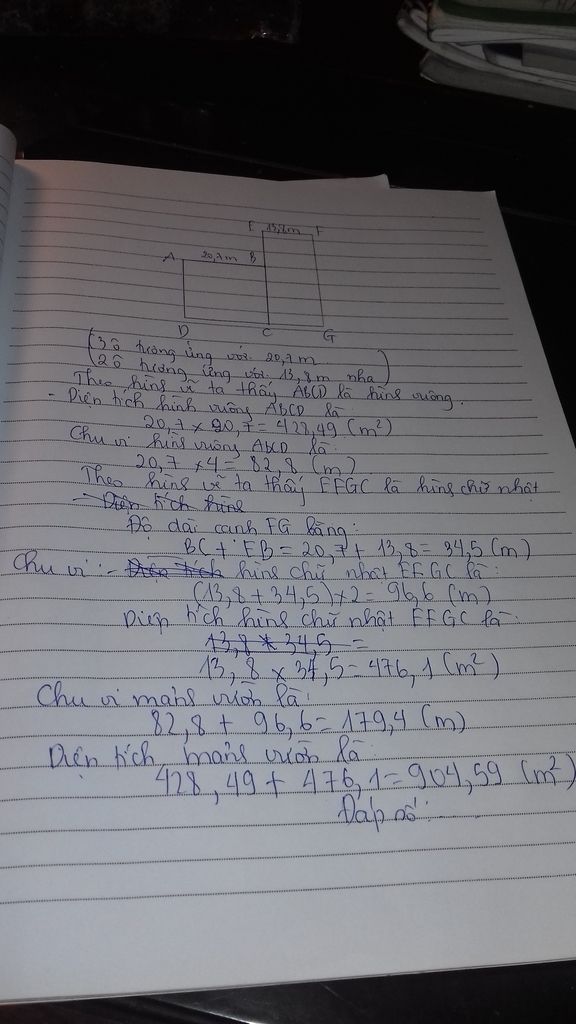 E 13,8m F
A 20,7m B
D C G
(3 ô tương ứng với 20,7m
2 ô tương ứng với 13,8m nha)
Theo hình vẽ ta thấy ABCD là hình vuông.
- Diện tích hình vuông ABCD là
20,7 x 20,7 = 428,49 (m²)
Chu vi hình vuông ABCD là:
20,7 x 4 = 82,8 (m)
Theo hình vẽ ta thấy EFGC là hình chữ nhật
- Diện tích hình
Độ dài cạnh FG bằng:
BC + EB = 20,7 + 13,8 = 34,5 (m)
Chu vi :- Diện tích hình chữ nhật EFGC là:
(13,8 + 34,5) x 2 = 96,6 (m)
Diện tích hình chữ nhật EFGC là:
13,8 x 34,5 =
13,8 x 34,5 = 476,1 (m²)
Chu vi mảnh vườn là:
82,8 + 96,6 = 179,4 (m)
Diện tích mảnh vườn là
428,49 + 476,1 = 904,59 (m²)
Đáp số: